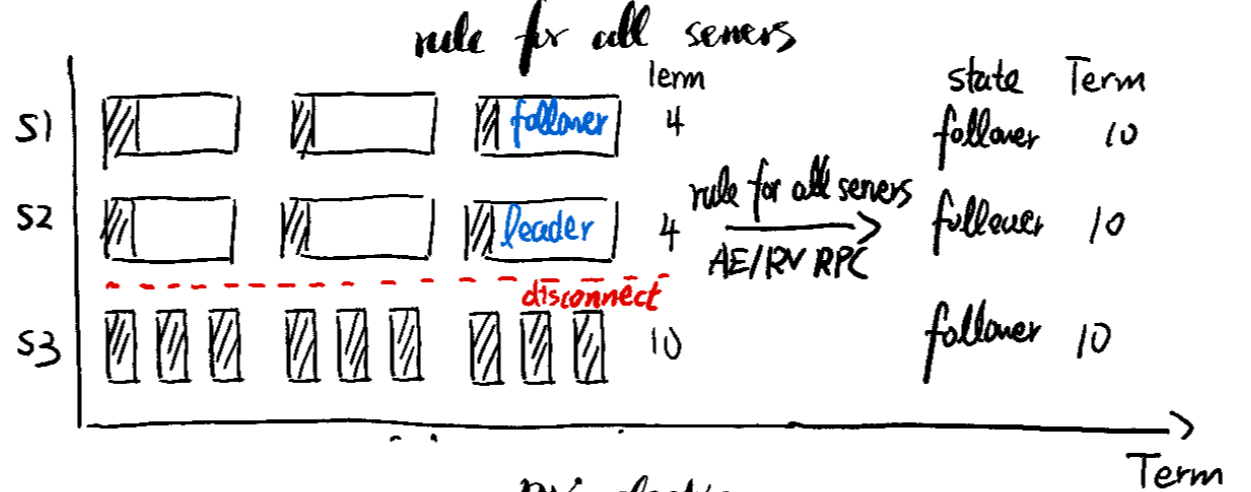 rule for all servers
Term
state Term
S1 follower 4
follower 10
S2 leader 4
rule for all servers
AE/RV RPC
follower 10
disconnect
S3 10
follower 10
Term